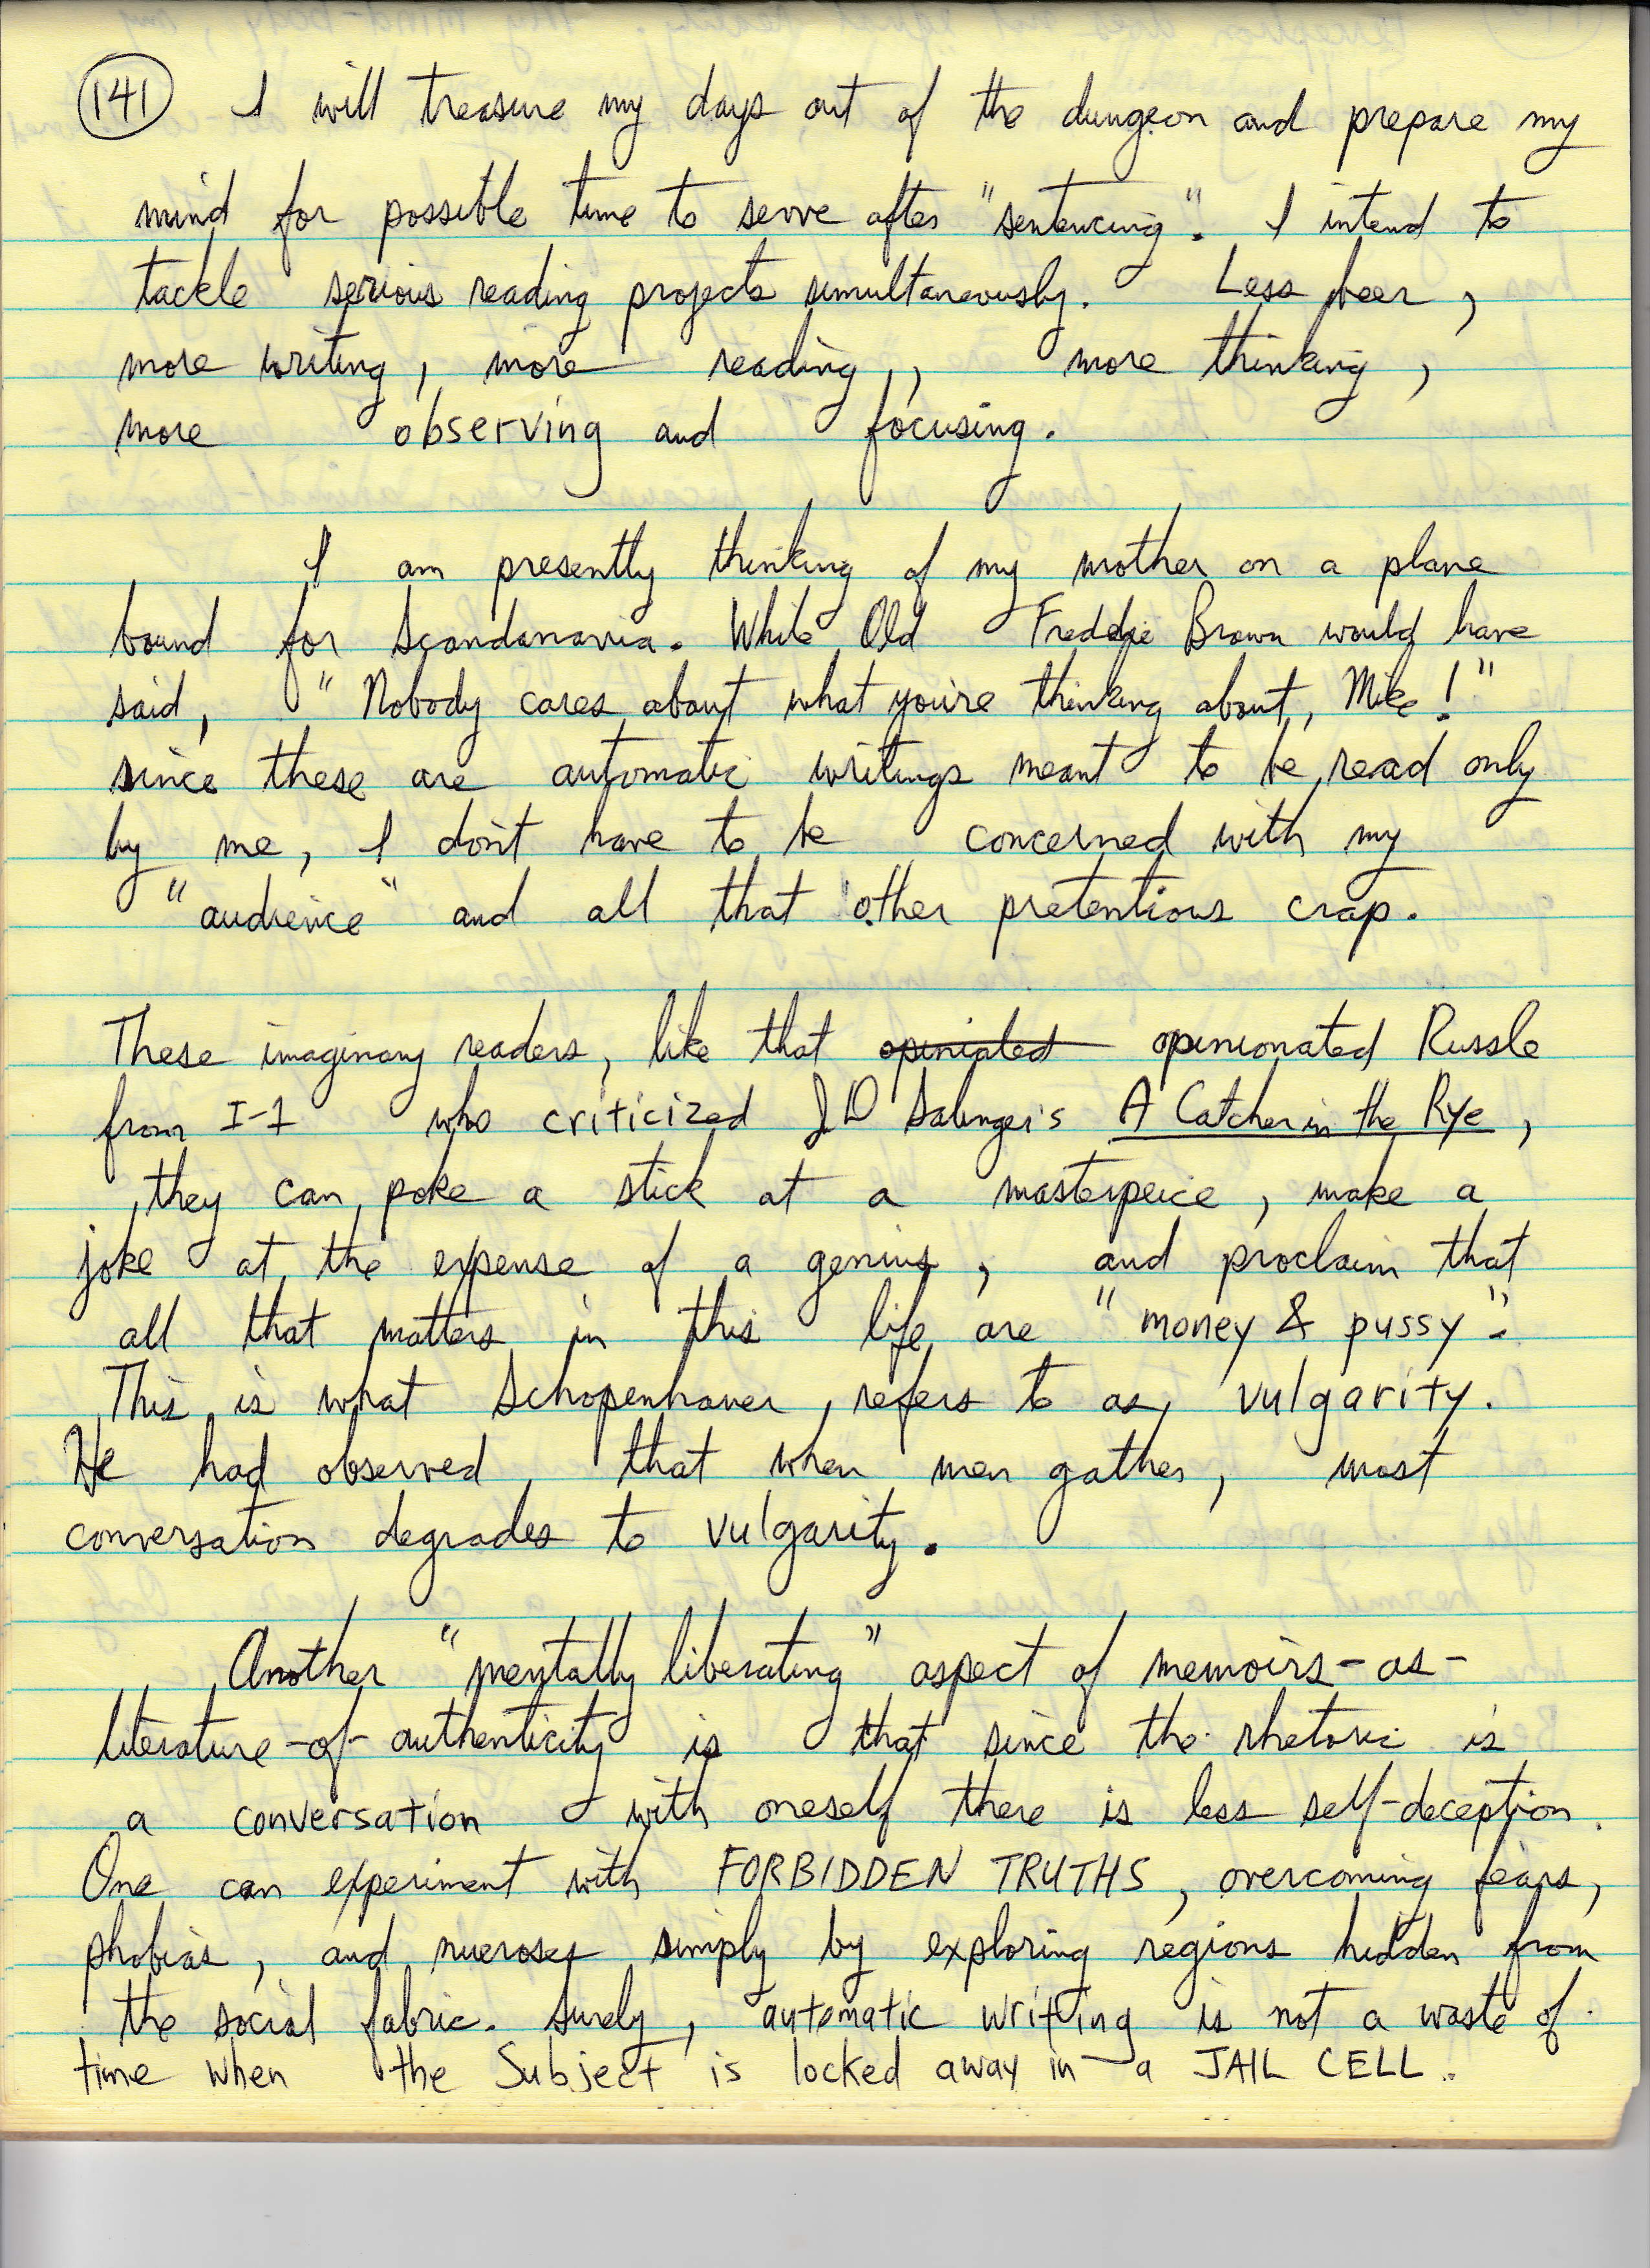 141 I will treasure my days out of the dungeon and prepare my
mind for possible time to serve after "sentencing". I intend to
tackle serious reading projects simultaneously. Less beer,
more writing, more reading, more thinking,
more observing and focusing.
I am presently thinking of my mother on a plane
bound for Scandanavia. While Old Freddie Brown would have
said, "Nobody cares about what you're thinking about, Mike!"
since these are automatic writings meant to be read only
by me, I don't have to be concerned with my
"audience" and all that other pretentious crap.
These imaginary readers, like that opiniated opinionated Russle
from I-1 who criticized JD Salinger's A Catcher in the Rye,
they can poke a stick at a masterpeice, make a
joke at the expense of a genius, and proclaim that
all that matters in this life are "money & pussy".
This is what Schopenhauer refers to as vulgarity.
He had observed that when men gather, most
conversation degrades to vulgarity.
Another "mentally liberating" aspect of memoirs-as-
literature-of-authenticity is that since the rhetoric is
a conversation with oneself there is less self-deception.
One can experiment with FORBIDDEN TRUTHS, overcoming fears,
phobias, and nueroses simply by exploring regions hidden from
the social fabric. Surely, automatic writing is not a waste of
time when the Subject is locked away in a JAIL CELL.